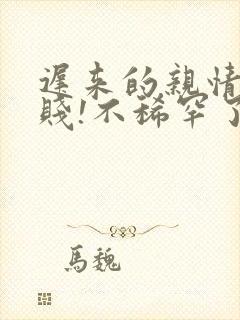 遲來的親情
賤!不稀罕了
馬魏